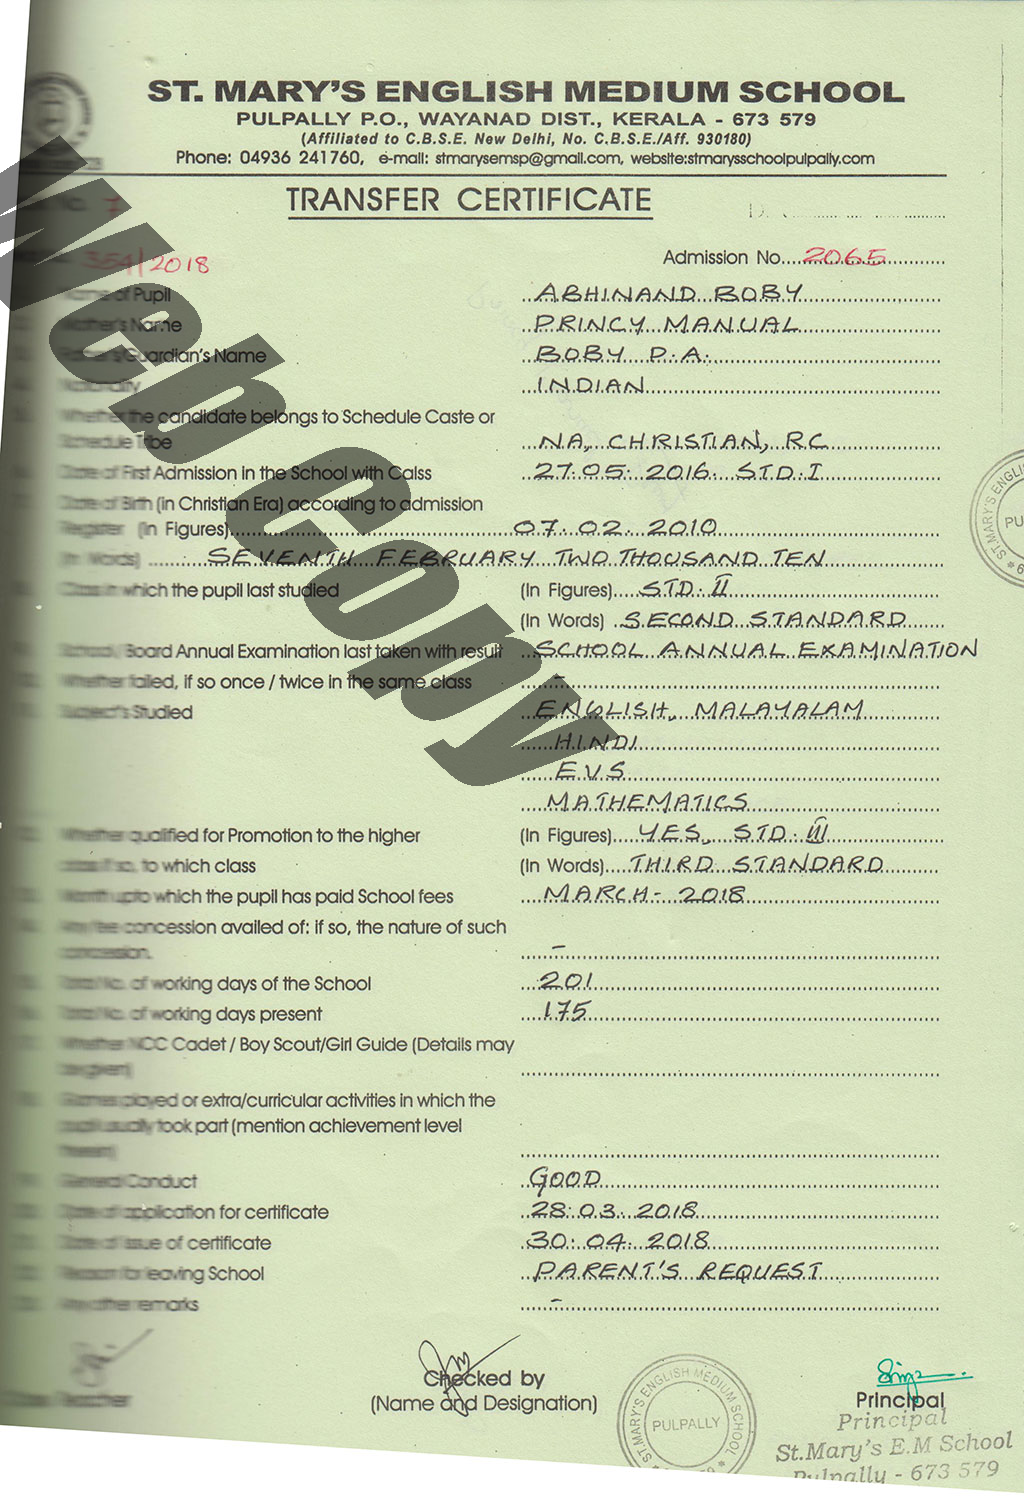 ST. MARY'S ENGLISH MEDIUM SCHOOL
PULPALLY P.O., WAYANAD DIST., KERALA - 673 579
(Affiliated to C.B.S.E. New Delhi, No. C.B.S.E./Aff. 930180)
Phone: 04936 241760, e-mail: stmarysemsp@gmail.com, website:stmarysschoolpulpally.com
TRANSFER CERTIFICATE
No. 7
354/2018 Admission No. 2065
Name of Pupil ABHINAND BOBY
Mother's Name PRINCY MANUAL
Father's/Guardian's Name BOBY P.A.
Nationality INDIAN
Whether the candidate belongs to Schedule Caste or
Schedule Tribe NA, CHRISTIAN, RC
Date of First Admission in the School with Calss 27.05.2016. STD.I
Date of Birth (in Christian Era) according to admission
Register (In Figures) 07.02.2010
(In Words) SEVENTH FEBRUARY TWO THOUSAND TEN
Class in which the pupil last studied (In Figures) STD.II
(In Words) SECOND STANDARD
School/Board Annual Examination last taken with result SCHOOL ANNUAL EXAMINATION
Whether failed, if so once / twice in the same class -
Subject's Studied ENGLISH, MALAYALAM
HINDI
EVS
MATHEMATICS
Whether qualified for Promotion to the higher (In Figures) YES, STD.III
class if so, to which class (In Words) THIRD STANDARD
Month upto which the pupil has paid School fees MARCH - 2018
Any fee concession availed of: if so, the nature of such
concession. -
Total No. of working days of the School 201
Total No. of working days present 175
Whether NCC Cadet / Boy Scout/Girl Guide (Details may
be given)
Games played or extra/curricular activities in which the
pupil usually took part (mention achievement level
therein)
General Conduct GOOD
Date of application for certificate 28.03.2018
Date of issue of certificate 30.04.2018
Reason for leaving School PARENT'S REQUEST
Any other remarks -
Class Teacher
Checked by
(Name and Designation)
Principal
Principal
St.Mary's E.M School
Pulpally - 673 579
ST.MARY'S ENGLISH MEDIUM SCHOOL
PULPALLY
ST.MARY'S ENGLISH
Web Copy